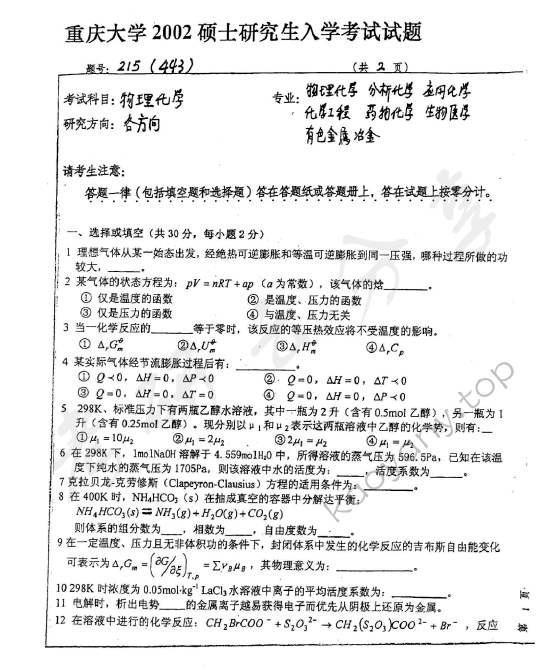 重庆大学 2002 硕士研究生入学考试试题
题号: 215 (443) (共 2 页)
考试科目: 物理化学 专业: 物理化学 分析化学 应用化学
化学工程 药物化学 生物医学
研究方向: 各方向
有色金属冶金
请考生注意:
答题一律(包括填空题和选择题)答在答题纸或答题册上,答在试题上按零分计。
一、选择或填空(共 30 分,每小题 2 分)
1 理想气体从某一始态出发,经绝热可逆膨胀和等温可逆膨胀到同一压强,哪种过程所做的功
较大,______。
2 某气体的状态方程为: pV = nRT + ap (a 为常数),该气体的焓______。
① 仅是温度的函数 ② 是温度、压力的函数
③ 仅是压力的函数 ④ 与温度、压力无关
3 当一化学反应的______等于零时,该反应的等压热效应将不受温度的影响。
① ΔrGm⊖ ②ΔrUm⊖ ③ΔrHm⊖ ④ΔrCp
4 某实际气体经节流膨胀过程后有: ______。
① Q≺0, ΔH=0, ΔP≺0 ② Q=0, ΔH=0, ΔT≺0
③ Q=0, ΔH=0, ΔT=0 ④ Q=0, ΔH=0, ΔP≺0
5 298K、标准压力下有两瓶乙醇水溶液,其中一瓶为 2 升(含有 0.5mol 乙醇),另一瓶为 1
升(含有 0.25mol 乙醇)。现分别以μ1和μ2表示这两瓶溶液中乙醇的化学势,则有:__
①μ1 = 10μ2 ②μ1 = 2μ2 ③2μ1 = μ2 ④μ1 = μ2
6 在 298K 下,1molNaOH 溶解于 4.559molH2O 中,所得溶液的蒸气压为 596.5Pa,已知在该温
度下纯水的蒸气压为 1705Pa,则该溶液中水的活度为:____,活度系数为____。
7 克拉贝龙-克劳修斯(Clapeyron-Clausius)方程的适用条件为:______。
8 在 400K 时,NH4HCO3(s)在抽成真空的容器中分解达平衡:
NH4HCO3(s) ⇌ NH3(g)+H2O(g)+CO2(g)
则体系的组分数为___,相数为____,自由度数为____。
9 在一定温度、压力且无非体积功的条件下,封闭体系中发生的化学反应的吉布斯自由能变化
可表示为 ΔrGm = (∂G/∂ξ)T,p = ΣνBμB,其物理意义为:______。
10 298K 时浓度为 0.05mol·kg-1 LaCl3 水溶液中离子的平均活度系数为:______。
11 电解时,析出电势____的金属离子越易获得电子而优先从阴极上还原为金属。
12 在溶液中进行的化学反应: CH2BrCOO- + S2O32- → CH2(S2O3)COO2- + Br-,反应
第 1 页
kaoyany.top